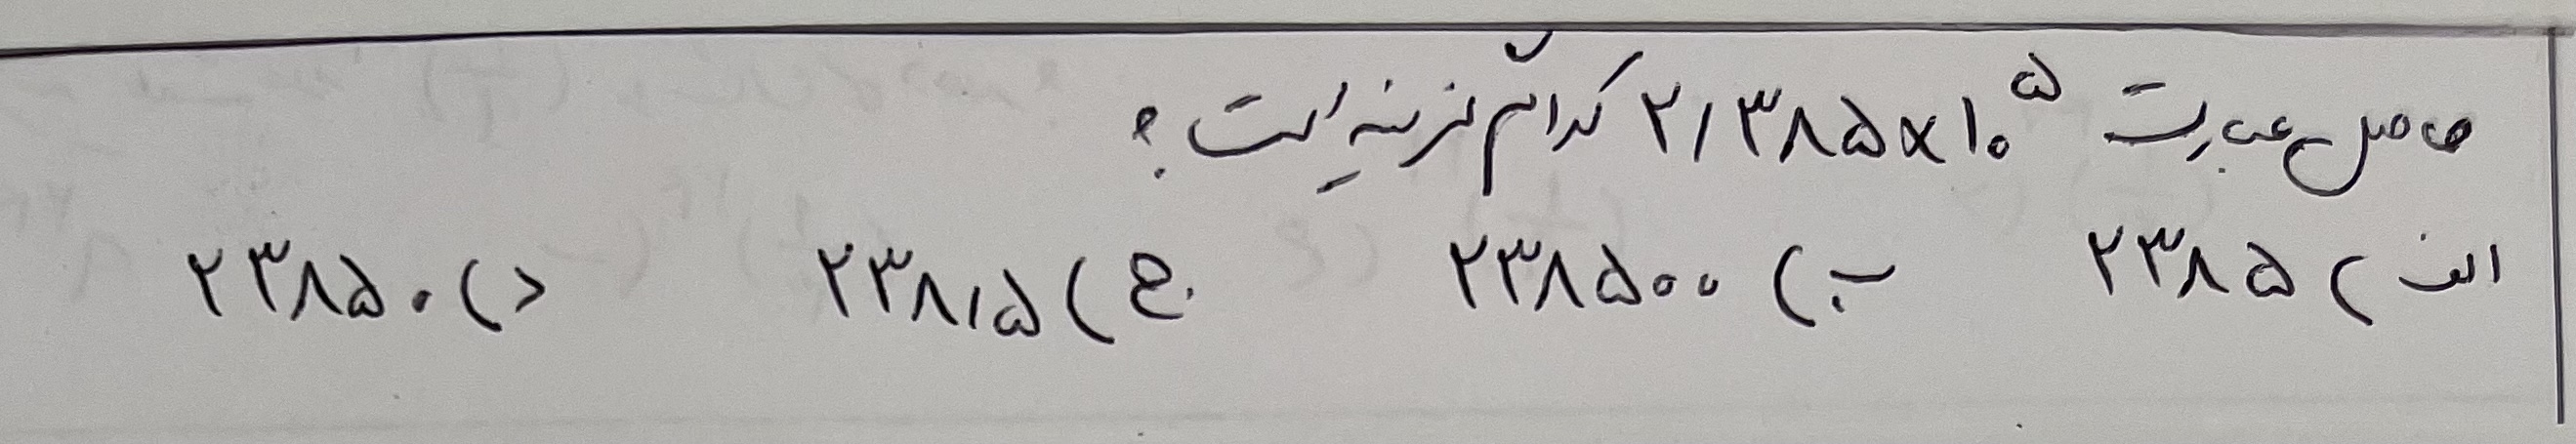 حاصل عبارت ۲/۳۸۵×۱۰^۵ کدام گزینه است؟
الف) ۲۳۸۵ ب) ۲۳۸۵۰۰ ج) ۲۳۸/۵ د) ۲۳۸۵۰